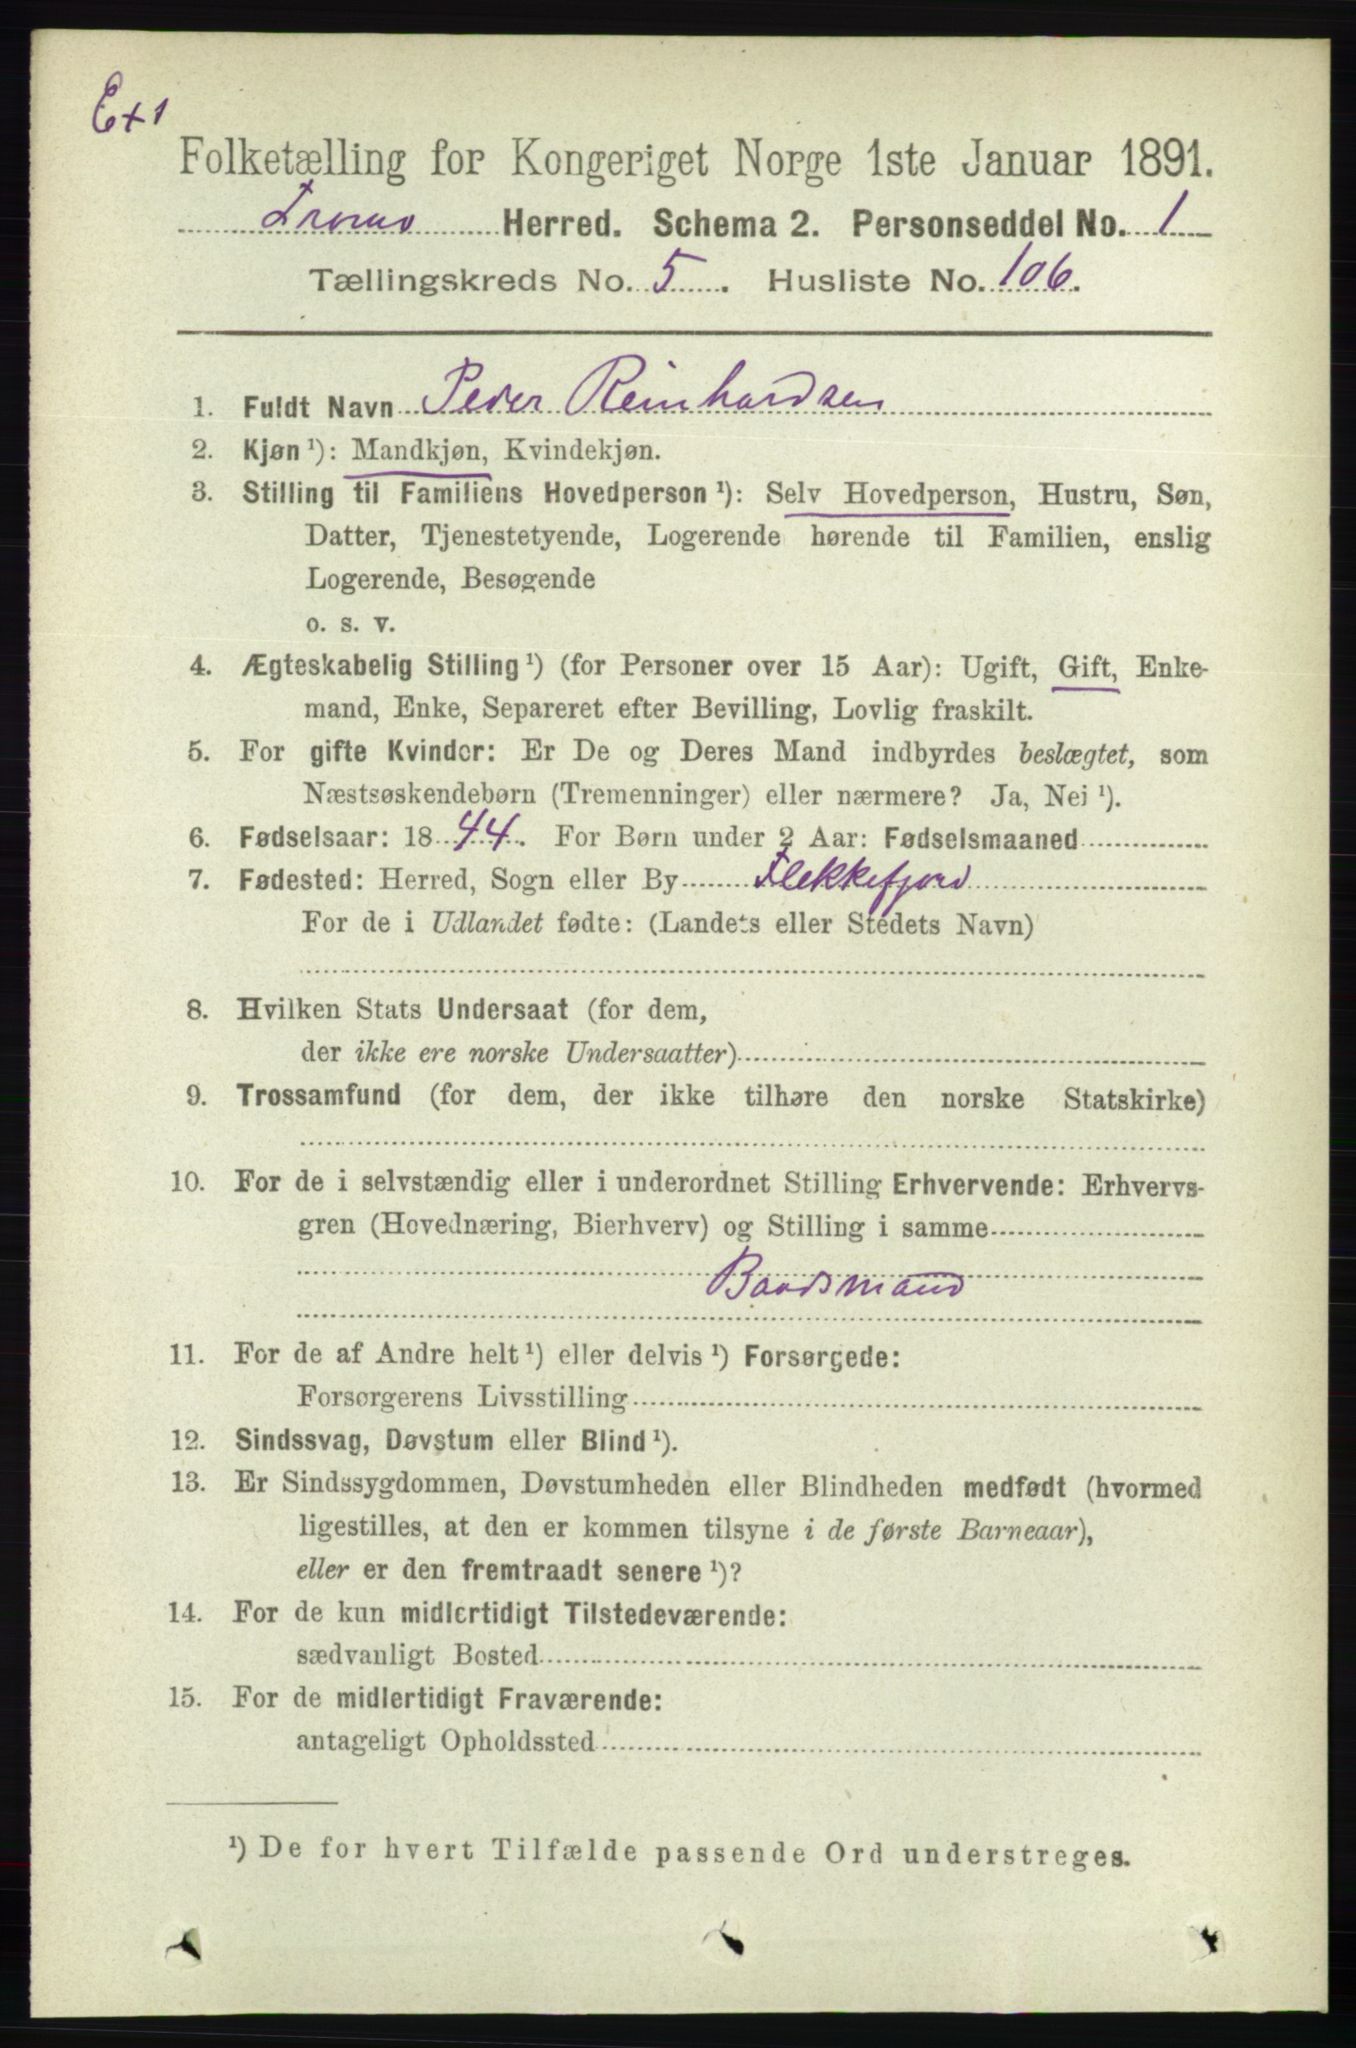 Ext
Folketælling for Kongeriget Norge 1ste Januar 1891.
Tromø Herred. Schema 2. Personseddel No. 1
Tællingskreds No. 5. Husliste No. 106.
1. Fuldt Navn Peder Reinhardsen
2. Kjøn ¹): Mandkjøn, Kvindekjøn.
3. Stilling til Familiens Hovedperson ¹): Selv Hovedperson, Hustru, Søn,
Datter, Tjenestetyende, Logerende hørende til Familien, enslig
Logerende, Besøgende
o. s. v.
4. Ægteskabelig Stilling ¹) (for Personer over 15 Aar): Ugift, Gift, Enke-
mand, Enke, Separeret efter Bevilling, Lovlig fraskilt.
5. For gifte Kvinder: Er De og Deres Mand indbyrdes beslægtet, som
Næstsøskendebørn (Tremenninger) eller nærmere? Ja, Nei ¹).
6. Fødselsaar: 1844. For Børn under 2 Aar: Fødselsmaaned
7. Fødested: Herred, Sogn eller By Flekkefjord
For de i Udlandet fødte: (Landets eller Stedets Navn)
8. Hvilken Stats Undersaat (for dem,
der ikke ere norske Undersaatter)
9. Trossamfund (for dem, der ikke tilhøre den norske Statskirke)
10. For de i selvstændig eller i underordnet Stilling Erhvervende: Erhvervs-
gren (Hovednæring, Bierhverv) og Stilling i samme
Baadsmand
11. For de af Andre helt ¹) eller delvis ¹) Forsørgede:
Forsørgerens Livsstilling
12. Sindssvag, Døvstum eller Blind ¹).
13. Er Sindssygdommen, Døvstumheden eller Blindheden medfødt (hvormed
ligestilles, at den er kommen tilsyne i de første Barneaar),
eller er den fremtraadt senere ¹)?
14. For de kun midlertidigt Tilstedeværende:
sædvanligt Bosted
15. For de midlertidigt Fraværende:
antageligt Opholdssted
¹) De for hvert Tilfælde passende Ord understreges.